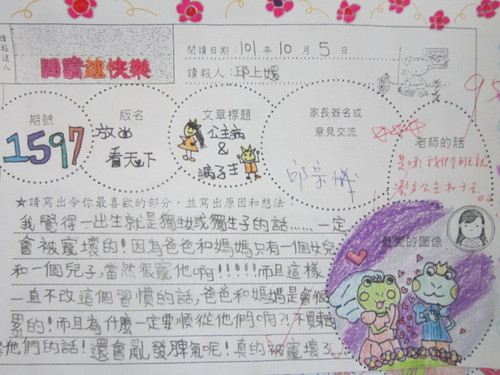 讀報達人
閱讀越快樂
閱讀日期：101年10月5日
讀報人：邱上媛
期號
1597
版名
放出
看天下
文章標題
公主病
&
病子王
家長簽名或
意見交流
老師的話
★請寫出令你最喜歡的部分，並寫出原因和想法
最愛的圖像
我覺得一出生就是獨女或獨生子的話……一定
會被寵壞的！因為爸爸和媽媽只有一個女兒
和一個兒子，當然很寵他啊!!!!!而且這樣
一直不改這個習慣的話，爸爸和媽媽是會很
累的！而且為什麼一定要順從他們啊?!不要
他們的話！還會亂發脾氣呢！真的被寵壞了